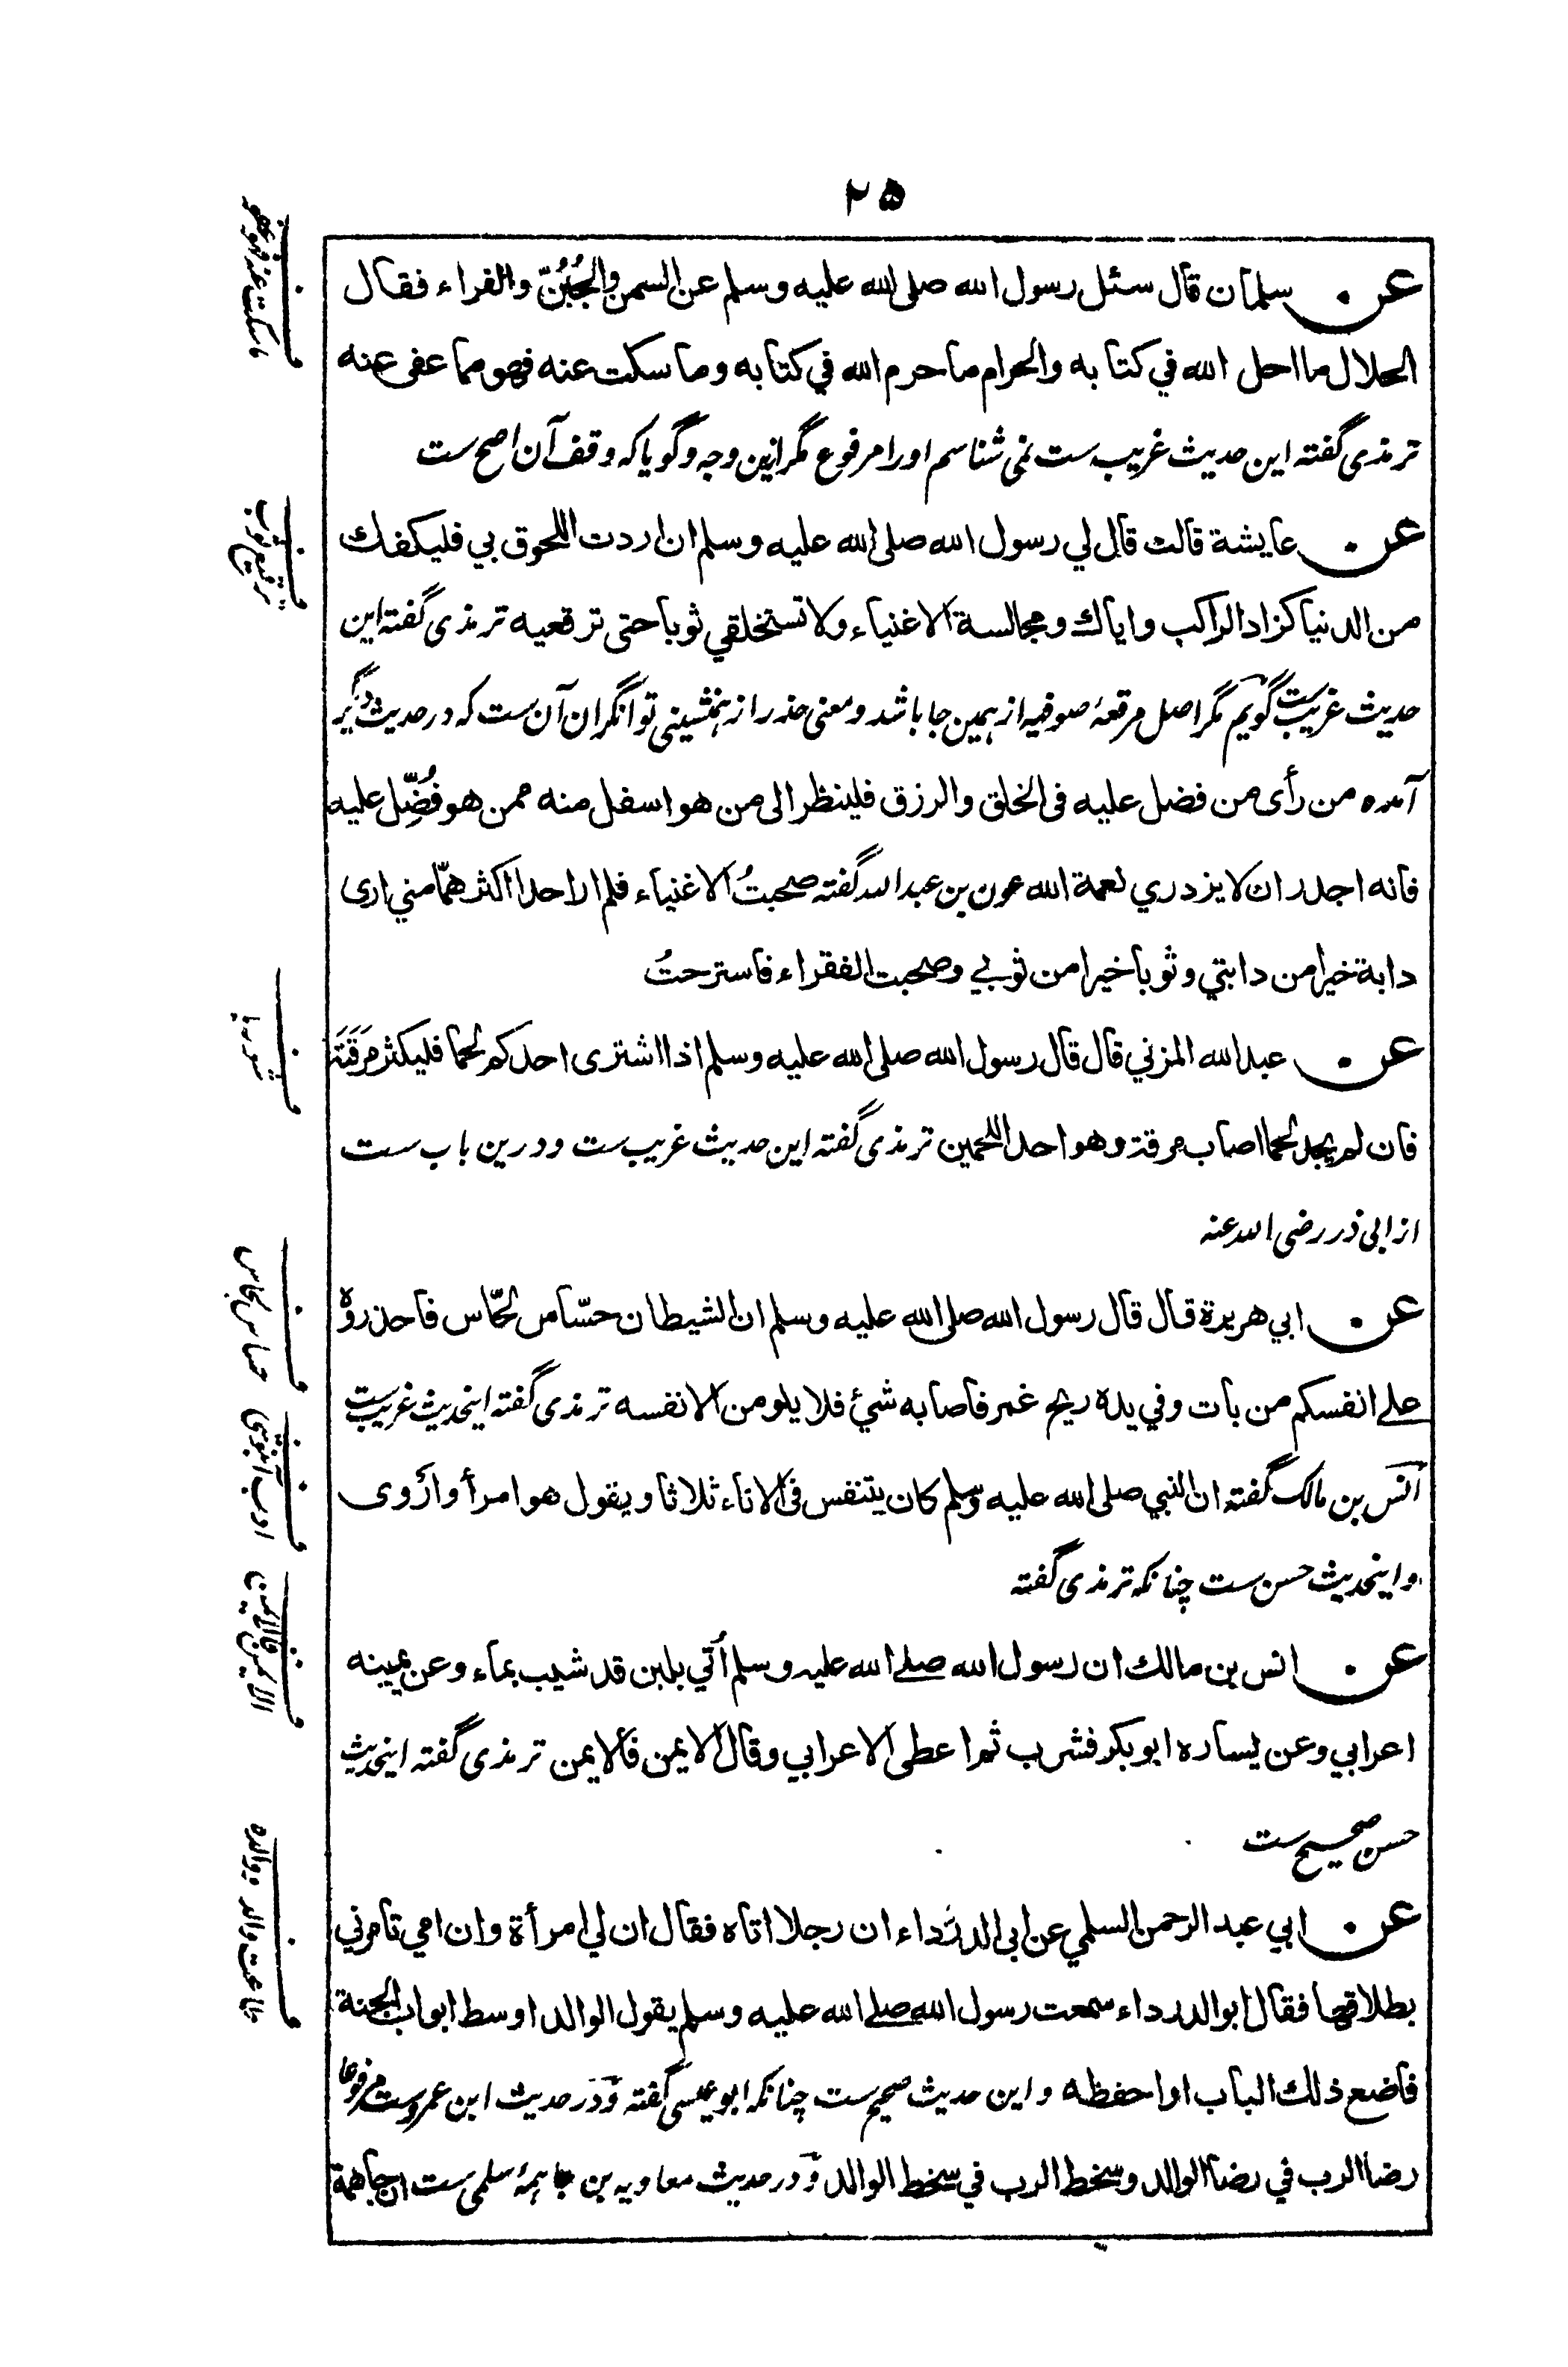 ۲۵
عن سلمان قال سئل رسول الله صلى الله عليه وسلم عن السمن والجُبُنّ والفراء فقال
الحلال ما احل الله في كتابه والحرام ما حرم الله في كتابه وما سكت عنه فهو مما عفى عنه
ترمذی گفته این حدیث غریب ست نمی شناسم اورا مرفوع مگر ازین وجه و گویا که وقف آن اصح ست
عن عايشة قالت قال لي رسول الله صلى الله عليه وسلم ان اردت اللحوق بي فليكفك
من الدنيا كزاد الراكب واياك ومجالسة الاغنياء ولا تستخلقي ثوبا حتى ترقعيه ترمذی گفته این
حدیث غریب ست گویم مگر اصل مرقعهٔ صوفیه از همین جا باشد و معنی حذر از همنشینی توانگران آن ست که در حدیث دیگر
آمده من رأى من فضل عليه فى الخلق والرزق فلينظر الى من هو اسفل منه ممن هو فُضِّل عليه
فانه اجدر ان لا يزدري نعمة الله عون بن عبد الله گفته صحبتُ الاغنياء فلم ار احدا اكثر همّا مني ارى
دابة خيرا من دابتي وثوبا خيرا من ثوبي وصحبت الفقراء فاسترحتُ
عن عبد الله المزني قال قال رسول الله صلى الله عليه وسلم اذا اشترى احدكم لحما فليكثر مَرَقَتَه
فان لم يجد لحما اصاب مرقة وهو احد اللحمين ترمذی گفته این حدیث غریب ست و درین باب ست
از ابی ذر رضی الله عنه
عن ابي هريرة قال قال رسول الله صلى الله عليه وسلم ان الشيطان حسّاس لحّاس فاحذروه
على انفسكم من بات وفي يده ريح غمر فاصابه شيئ فلا يلومن الا نفسه ترمذی گفته اینحدیث غریب ست
انس بن مالک گفته ان النبي صلى الله عليه وسلم كان يتنفس فى الاناء ثلاثا ويقول هو امرأ واروى
و اینحدیث حسن ست چنانکه ترمذی گفته
عن انس بن مالك ان رسول الله صلے الله عليه وسلم اُتي بلبن قد شيب بماء وعن يمينه
اعرابي وعن يساره ابو بكر فشرب ثم اعطى الاعرابي وقال الايمن فالايمن ترمذی گفته اینحدیث
حسن صحیح ست
عن ابي عبد الرحمن السلمي عن ابى الدرداء ان رجلا اتاه فقال ان لي امرأة وان امي تامرني
بطلاقها فقال ابو الدرداء سمعت رسول الله صلے الله عليه وسلم يقول الوالد اوسط ابواب الجنة
فاضع ذلك الباب او احفظه و این حدیث صحیح ست چنانکه ابو عیسی گفته و در حدیث ابن عمرو ست مرفوعا
رضا الرب في رضا الوالد وسخط الرب في سخط الوالد و در حدیث معاویه بن جاهمهٔ سلمی ست ان جاهمة
ما سكت عنه فهو عفو
ترقیع ثوب
شوربا
حساس لحاس
ادب آبنوشی
الايمن فالايمن